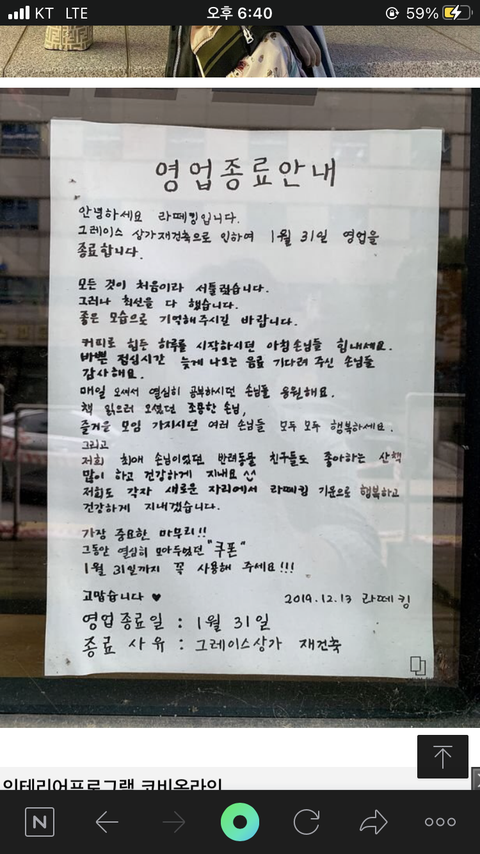 KT LTE 오후 6:40 59%
영업종료안내
안녕하세요 라떼킹입니다.
그레이스 상가재건축으로 인하여 1월 31일 영업을
종료합니다.
모든 것이 처음이라 서툴렀습니다.
그러나 최선을 다 했습니다.
좋은 모습으로 기억해주시길 바랍니다.
커피로 힘든 하루를 시작하시던 아침손님들 힘내세요.
바쁜 점심시간 늦게 나오는 음료 기다려 주신 손님들
감사해요.
매일 오셔서 열심히 공부하시던 손님들 응원해요.
책 읽으러 오셨던 조용한 손님,
즐거운 모임 가지시던 여러 손님들 모두 모두 행복하세요.
그리고
저희 최애 손님이었던 반려동물 친구들도 좋아하는 산책
많이 하고 건강하게 지내요 ^^
저희도 각자 새로운 자리에서 라떼킹 기운으로 행복하고
건강하게 지내겠습니다.
가장 중요한 마무리!!
그동안 열심히 모아두었던 "쿠폰"
1월 31일까지 꼭 사용해 주세요!!!
고맙습니다 ♥ 2019.12.13 라떼킹
영업종료일 : 1월 31일
종료 사유 : 그레이스상가 재건축
인테리어프로그램 코비온라인
N